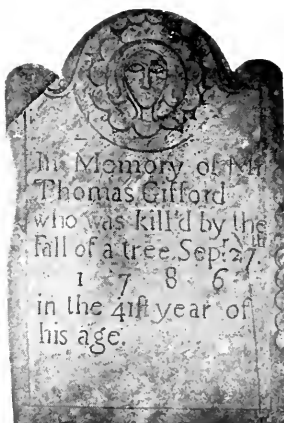 In Memory of Mr
Thomas Gifford
who was kill'd by the
Fall of a tree Sepr. 27th
1786
in the 41ſt year of
his age.